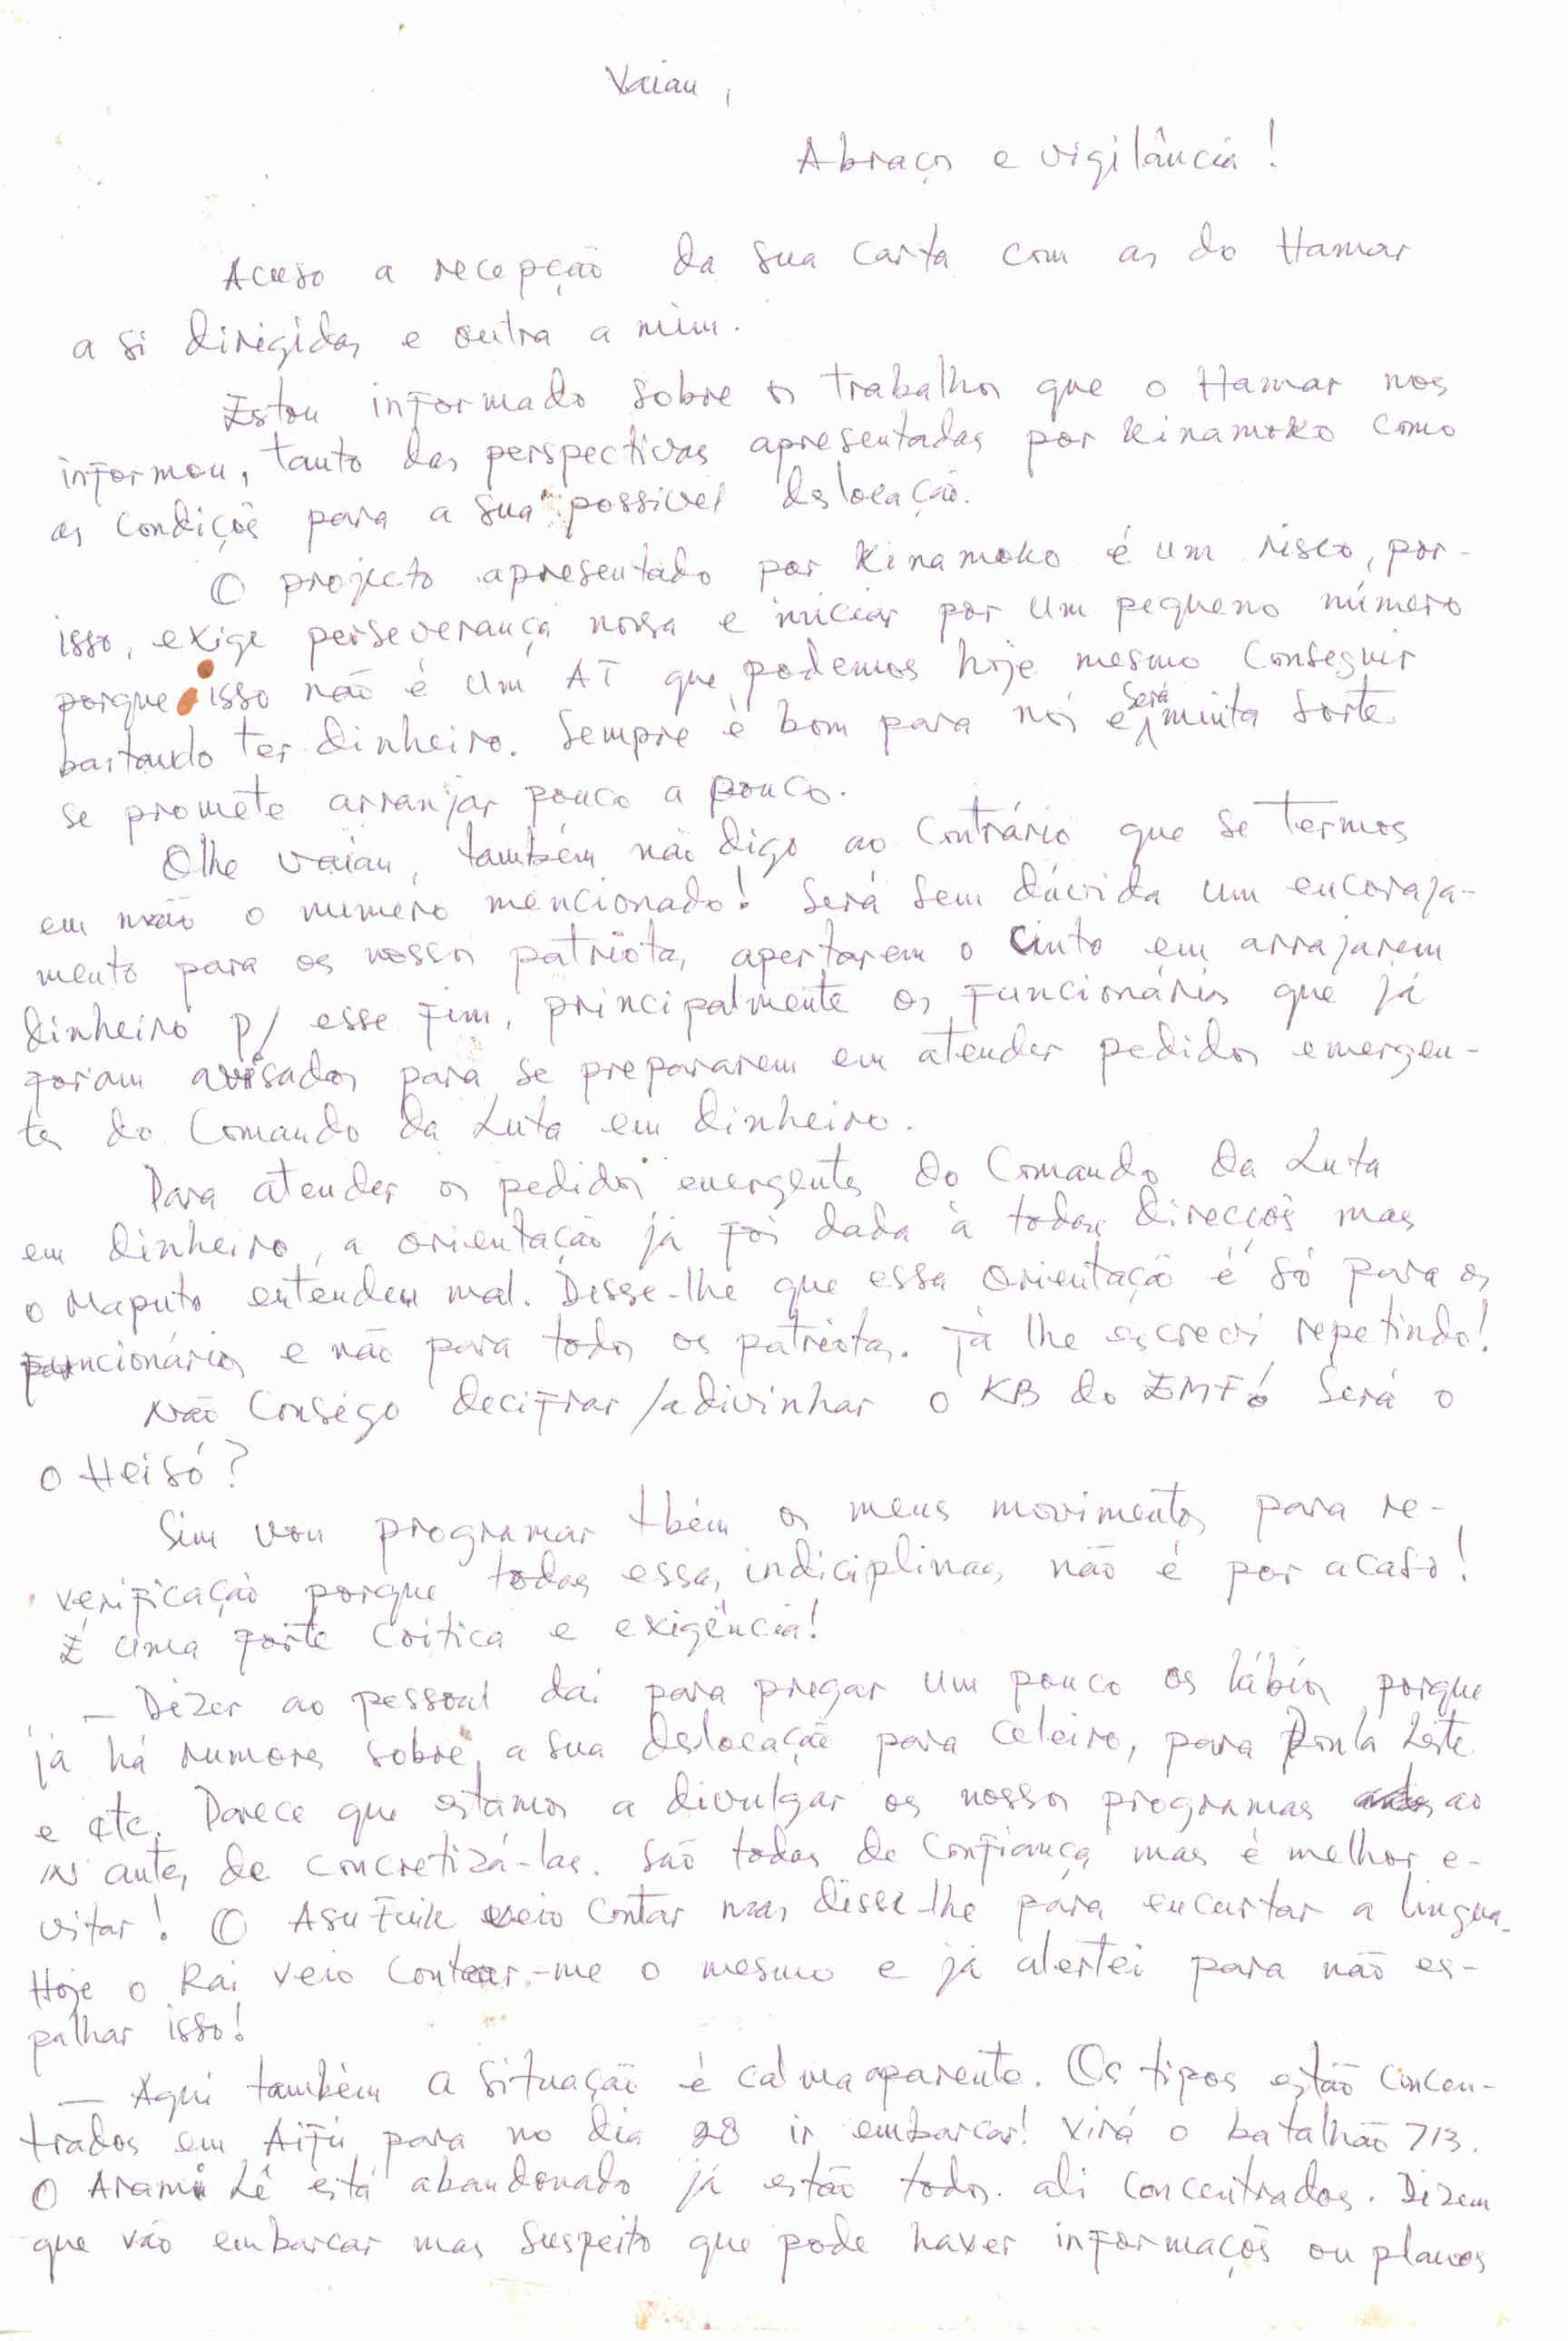 Vaiau,
Abraços e vigilância!
Acuso a recepção da sua carta com as do Hamar
a si dirigidas e outra a mim.
Estou informado sobre os trabalhos que o Hamar nos
informou, tanto das perspectivas apresentadas por Kinamoko como
as condições para a sua possivel deslocação.
O projecto apresentado por Kinamoko é um risco, por-
isso, exige perseverança nossa e iniciar por um pequeno número
porque isso não é um AT que podemos hoje mesmo conseguir
bastando ter dinheiro. Sempre é bom para nós e será muita sorte
se promete arranjar pouco a pouco.
Olhe Vaiau, também não digo ao contrário que se termos
em mão o numero mencionado! Será sem dúvida um encoraja-
mento para os nossos patriotas apertarem o cinto em arrajarem
dinheiro p/ esse fim, principalmente os funcionários que já
foram avisados para se prepararem em atender pedidos emergen-
tes do Comando da Luta em dinheiro.
Para atender os pedidos emergentes do Comando da Luta
em dinheiro, a orientação já foi dada à todas direcções mas
o Maputo entendeu mal. Disse-lhe que essa orientação é só para os
funcionários e não para todos os patriotas. Já lhe escrevi repetindo!
Não consego decifrar/adivinhar o KB do EMFó Será o
o Heisó?
Sim vou programar tbém os meus movimentos para re-
verificação porque todas essas indiciplinas não é por acaso!
É uma forte crítica e exigência!
— Dizer ao pessoal dai para pregar um pouco os lábios porque
já há rumores sobre a sua deslocação para Celeiro, para Ponta Leste
e etc. Parece que estamos a divulgar os nossos programas ao
IN antes de concretizá-las. São todos de confiança mas é melhor e-
vitar! O Asu Fuik veio contar mas disse-lhe para encurtar a lingua.
Hoje o Rai veio contar-me o mesmo e já alertei para não es-
palhar isso!
— Aqui também a situação é calma aparente. Os tipos estão concen-
trados em Aifú para no dia 28 ir embarcar! Virá o batalhão 713.
O Arami Lê está abandonado já estão todos ali concentrados. Dizem
que vão embarcar mas suspeito que pode haver informações ou planos